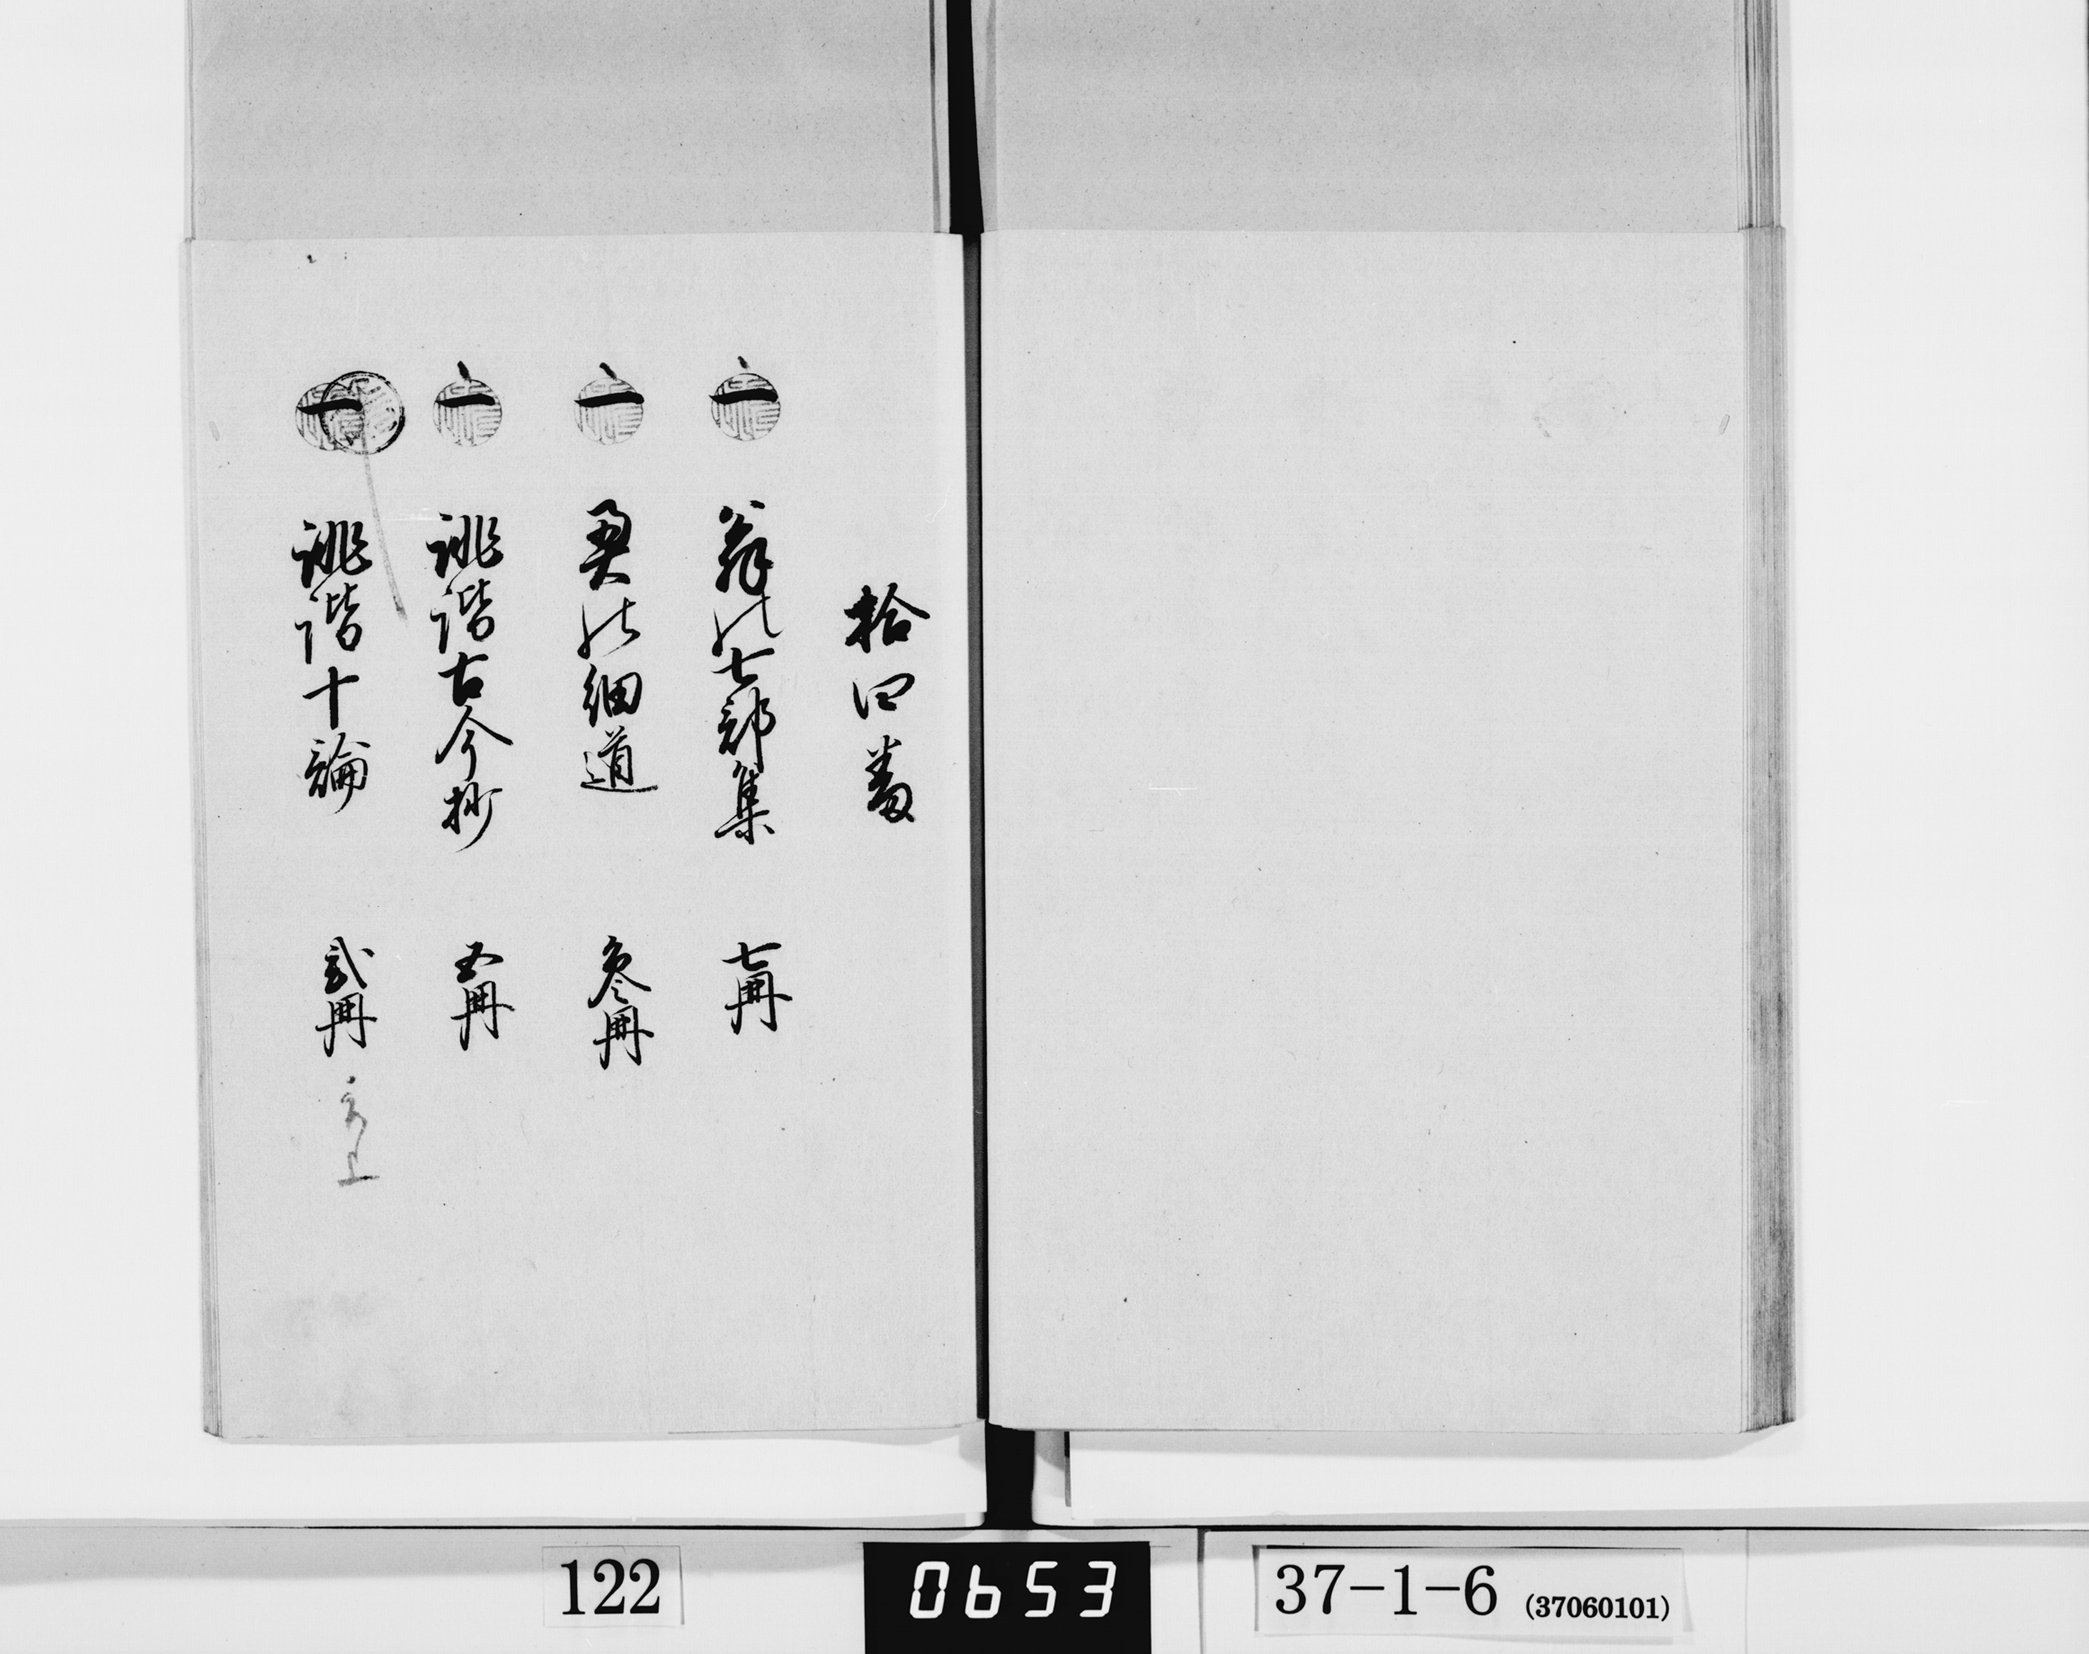 拾四番
一 翁の七部集 七冊
一 奥の細道 参冊
一 誹諧古今抄 五冊
一 誹諧十論 弐冊
122
0653
37-1-6 (37060101)